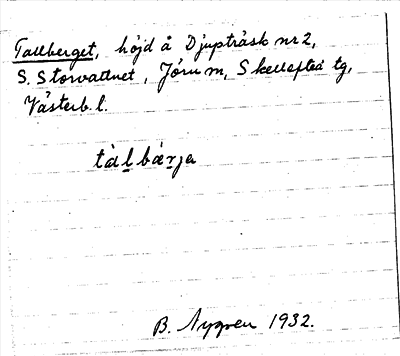 Tallberget, höjd å Djupträsk nr 2,
S. Storvattnet, Jörn m, Skellefteå tg,
Västerb. l.
tàl̲bær̲ja
B. Nygren 1932.